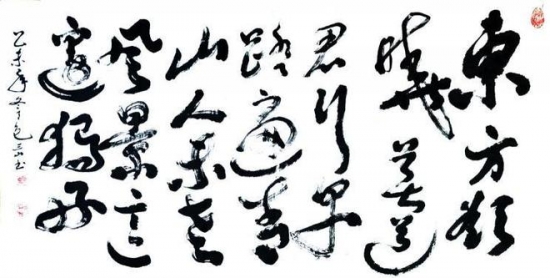 東方欲
曉莫道
君行早
踏遍青
山人未老
風景這
邊獨好
乙未年冬